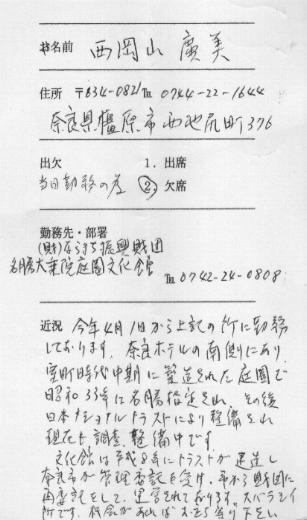 お名前 西岡山 廣美
住所 〒634-0821 ℡ 0744-22-1644
奈良県橿原市西池尻町376
出欠 1. 出席
当日勤務の為 2. 欠席
勤務先・部署
(財)ならまち振興財団
名勝大乗院庭園文化館
℡ 0742-24-0808
近況 今年4月1日から上記の所に勤務
しております。奈良ホテルの南側にあり
室町時代中期に築造された庭園で
昭和33年に名勝指定され、その後
日本ナショナルトラストにより整備され
現在も調査、整備中です。
文化館は平成8年にトラストが建造し
奈良市が管理委託を受け、市から財団に
再委託をして、運営されております。スバラシイ
所です。機会があればお立ち寄り下さい